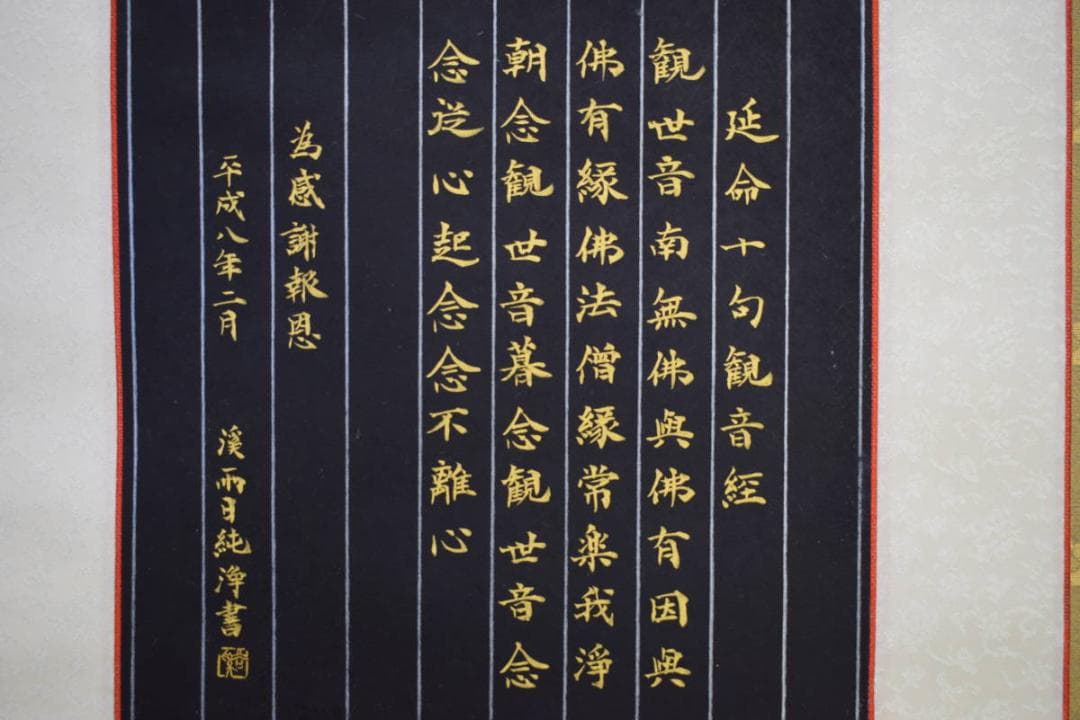 延命十句観音経
観世音南無佛與佛有因與
佛有縁佛法僧縁常楽我淨
朝念観世音暮念観世音念
念従心起念念不離心
為感謝報恩
平成八年二月 溪雨日純浄書